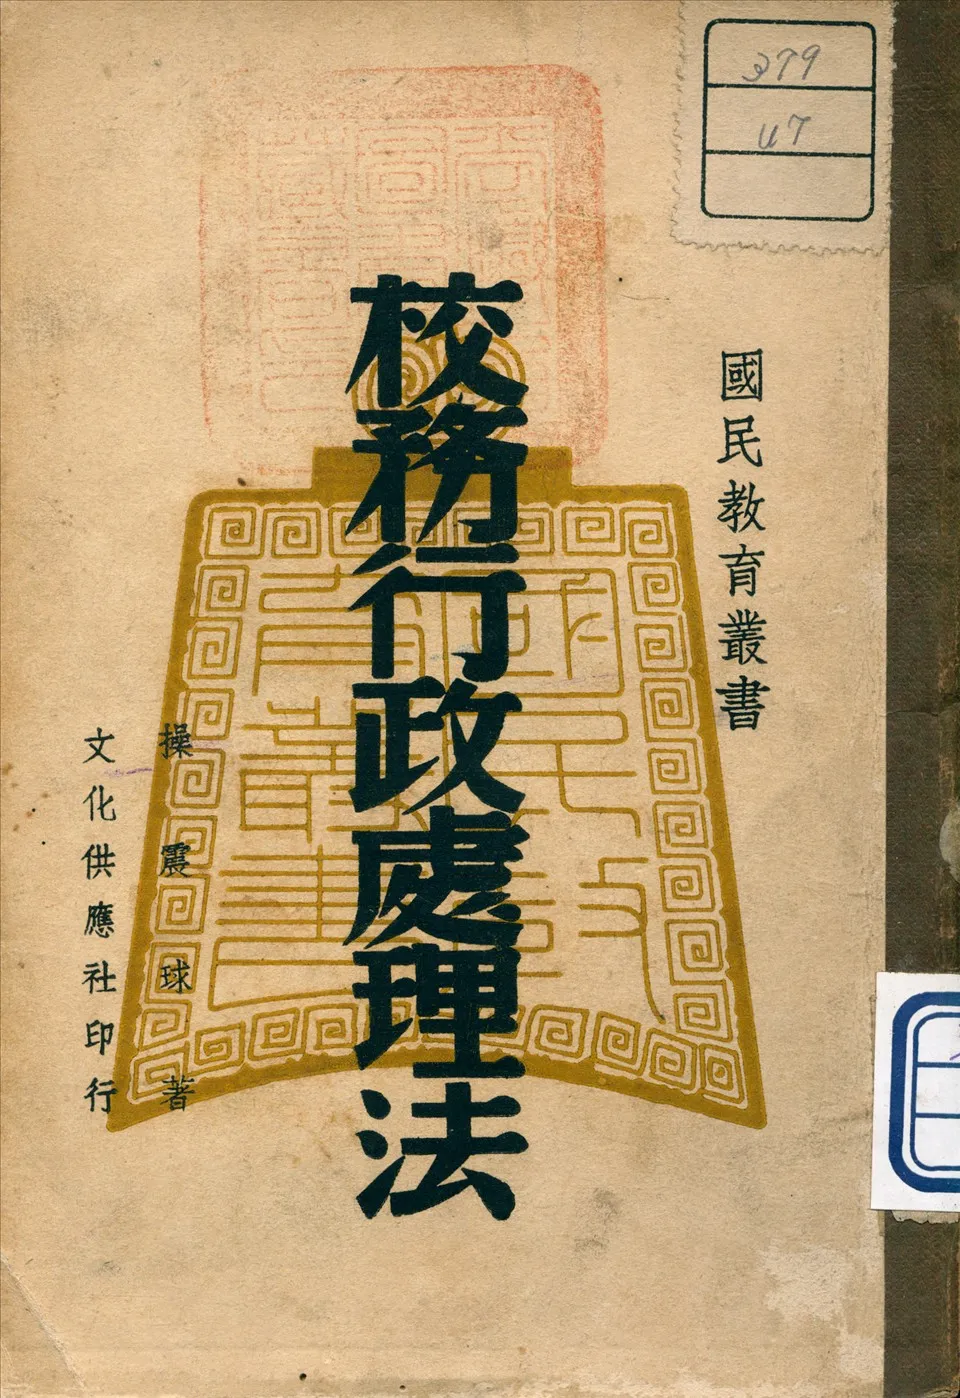 379
47
國民教育叢書
校務行政處理法
國民教育叢書
操震球著
文化供應社印行